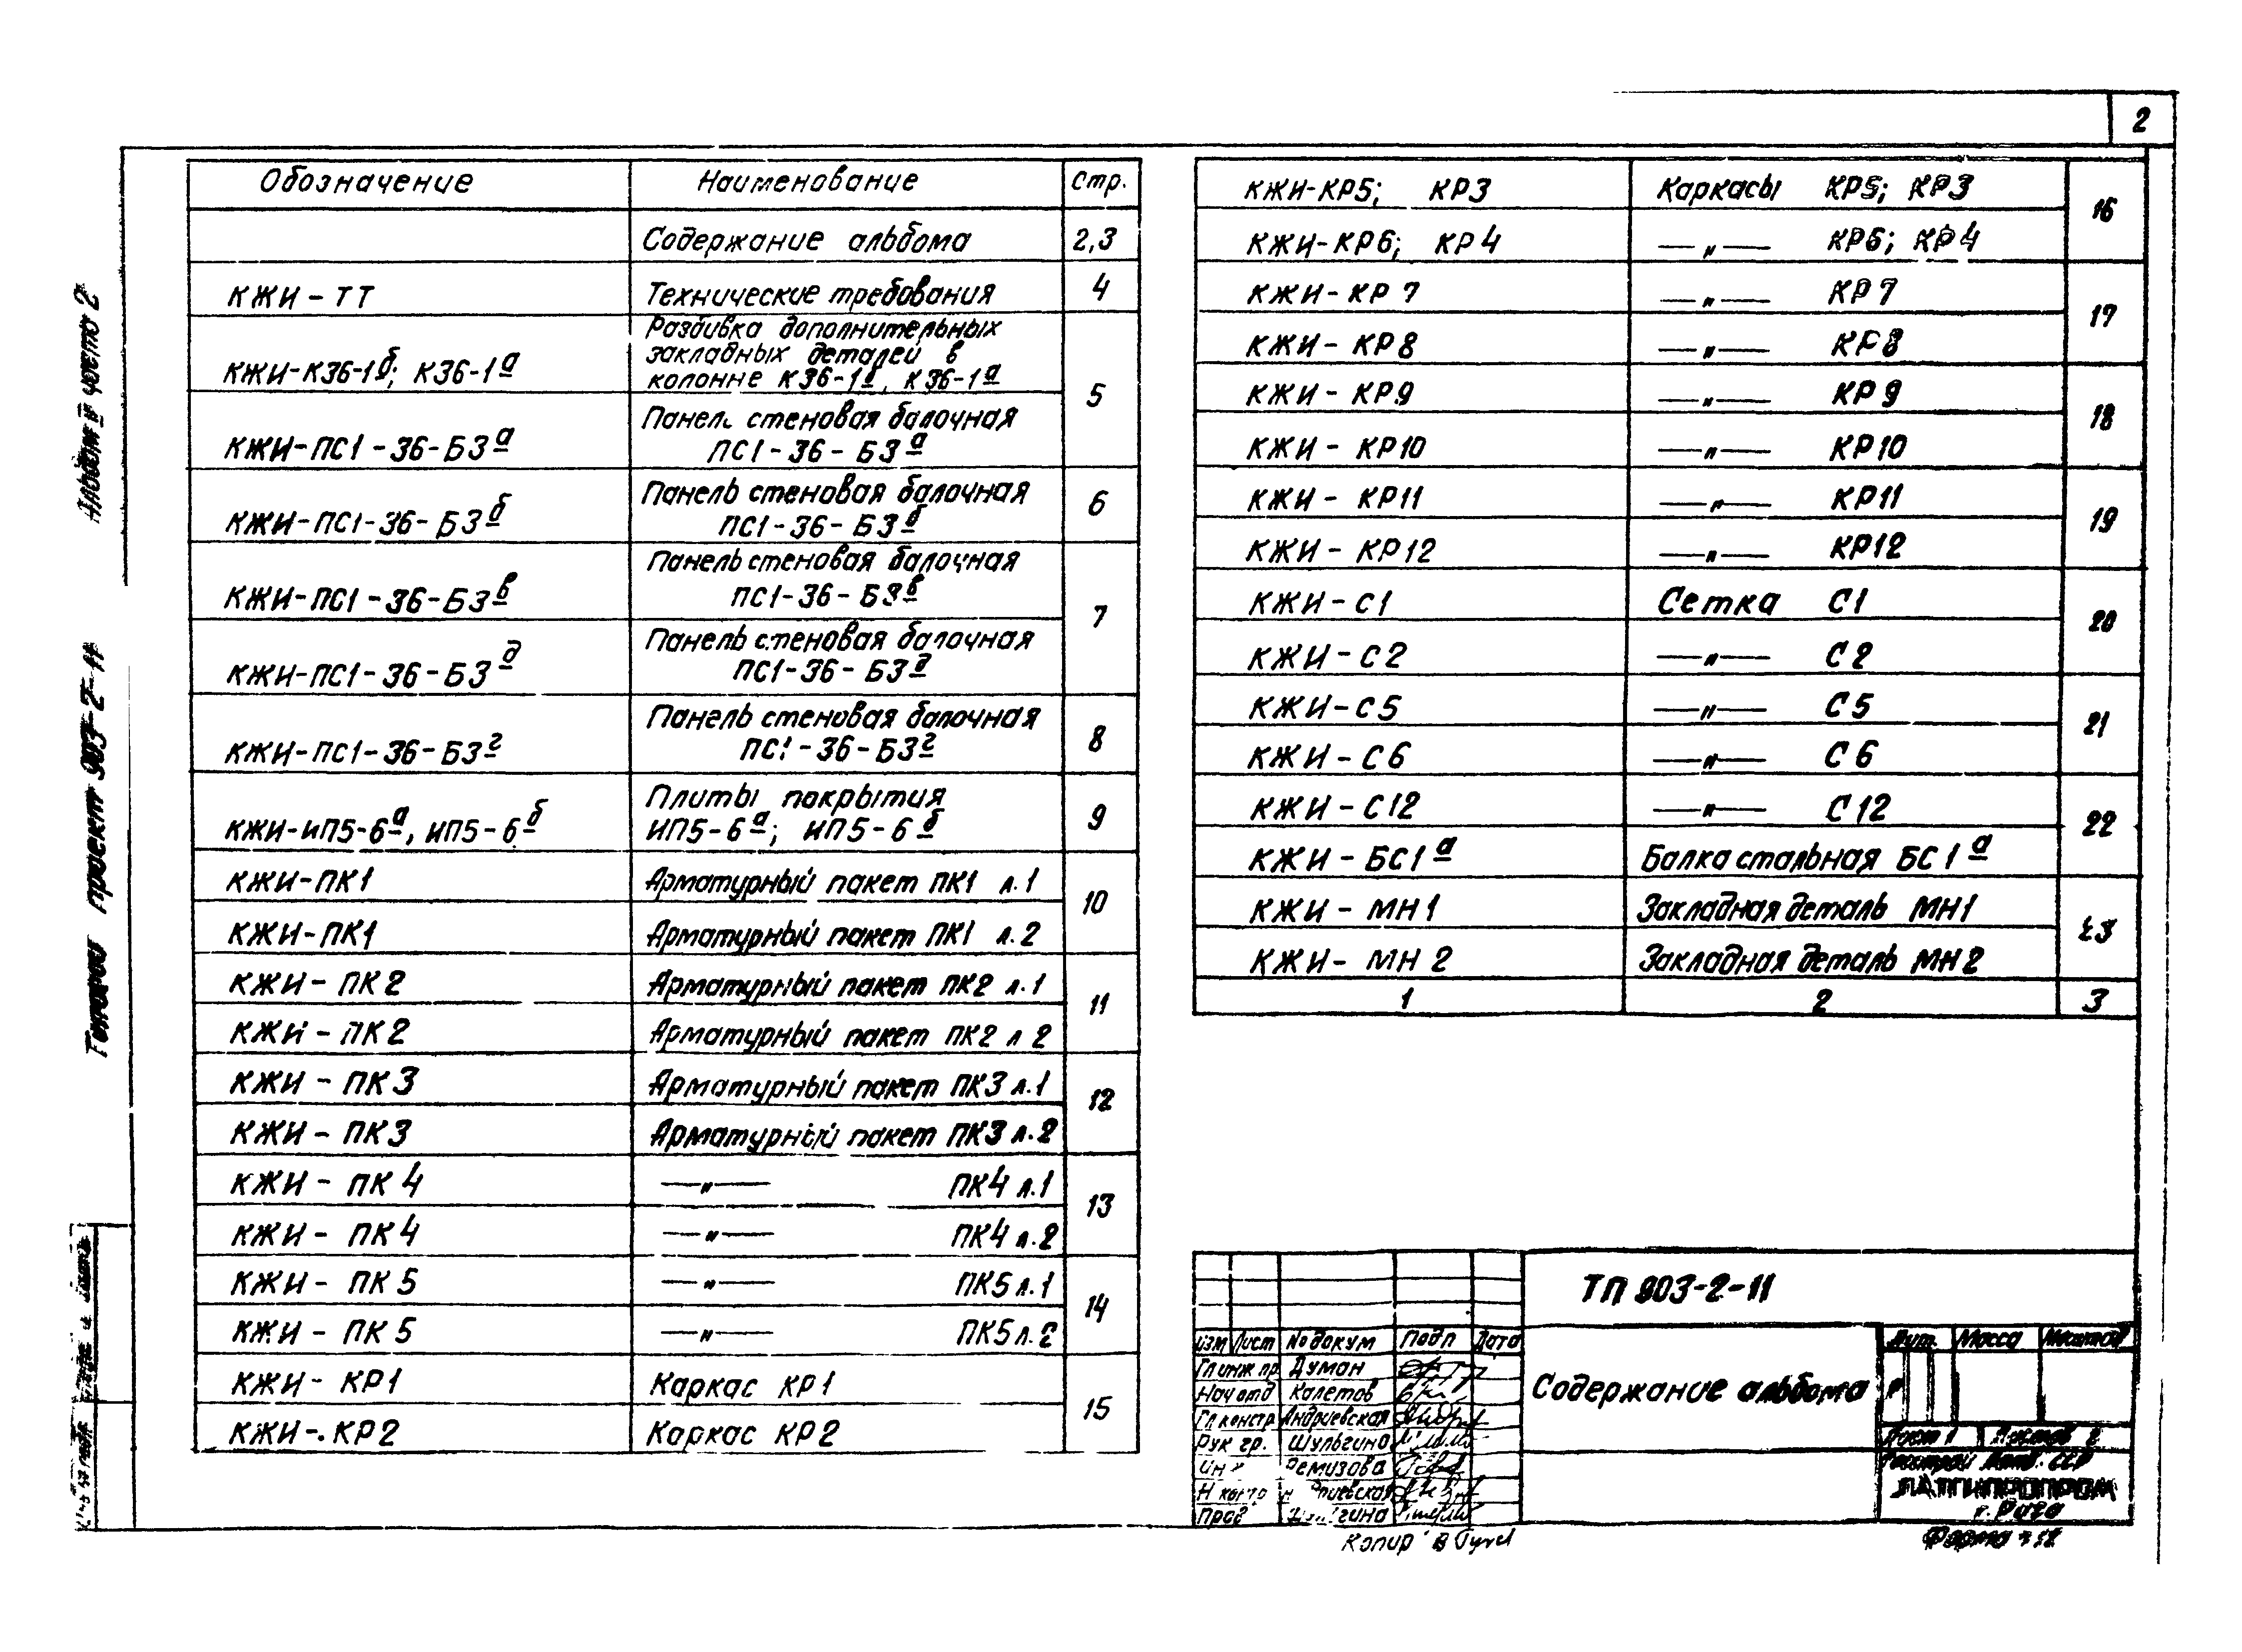 2
Обозначение Наименование Стр.
Содержание альбома 2,3
КЖИ-ТТ Технические требования 4
КЖИ-К36-1б; К36-1а Разбивка дополнительных
закладных деталей в
колонне К36-1б, К36-1а
5
КЖИ-ПС1-36-Б3а Панель стеновая балочная
ПС1-36-Б3а
КЖИ-ПС1-36-Б3б Панель стеновая балочная
ПС1-36-Б3б
6
КЖИ-ПС1-36-Б3в Панель стеновая балочная
ПС1-36-Б3в
7
КЖИ-ПС1-36-Б3д Панель стеновая балочная
ПС1-36-Б3д
КЖИ-ПС1-36-Б3г Панель стеновая балочная
ПС1-36-Б3г
8
КЖИ-ИП5-6а, ИП5-6б Плиты покрытия
ИП5-6а; ИП5-6б
9
КЖИ-ПК1 Арматурный пакет ПК1 л.1
10
КЖИ-ПК1 Арматурный пакет ПК1 л.2
КЖИ-ПК2 Арматурный пакет ПК2 л.1
11
КЖИ-ПК2 Арматурный пакет ПК2 л 2
КЖИ-ПК3 Арматурный пакет ПК3 л.1
12
КЖИ-ПК3 Арматурный пакет ПК3 л.2
КЖИ-ПК4 —„— ПК4 л.1
13
КЖИ-ПК4 —„— ПК4 л.2
КЖИ-ПК5 —„— ПК5 л.1
14
КЖИ-ПК5 —„— ПК5 л.2
КЖИ-КР1 Каркас КР1
15
КЖИ-КР2 Каркас КР2
КЖИ-КР5; КР3 Каркасы КР5; КР3
16
КЖИ-КР6; КР4 —„— КР6; КР4
КЖИ-КР7 —„— КР7
17
КЖИ-КР8 —„— КР8
КЖИ-КР9 —„— КР9
18
КЖИ-КР10 —„— КР10
КЖИ-КР11 —„— КР11
19
КЖИ-КР12 —„— КР12
КЖИ-С1 Сетка С1
20
КЖИ-С2 —„— С2
КЖИ-С5 —„— С5
21
КЖИ-С6 —„— С6
КЖИ-С12 —„— С12
22
КЖИ-БС1а Балка стальная БС1а
КЖИ-МН1 Закладная деталь МН1
23
КЖИ-МН2 Закладная деталь МН2
1 2 3
Альбом IV часть 2
Типовой проект 903-2-11
ТП 903-2-11
Изм Лист № докум Подп Дата
Гл инж пр. Думан
Нач отд Калетов
Гл констр Андриевская
Рук гр. Шульгина
Инж Ремизова
Н контр
Пров
Содержание альбома
Лит. Масса Масштаб
Р
Лист 1 Листов 2
Госстрой Латв. ССР
ЛАТГИПРОПРОМ
г. Рига
Копир
Форма 12